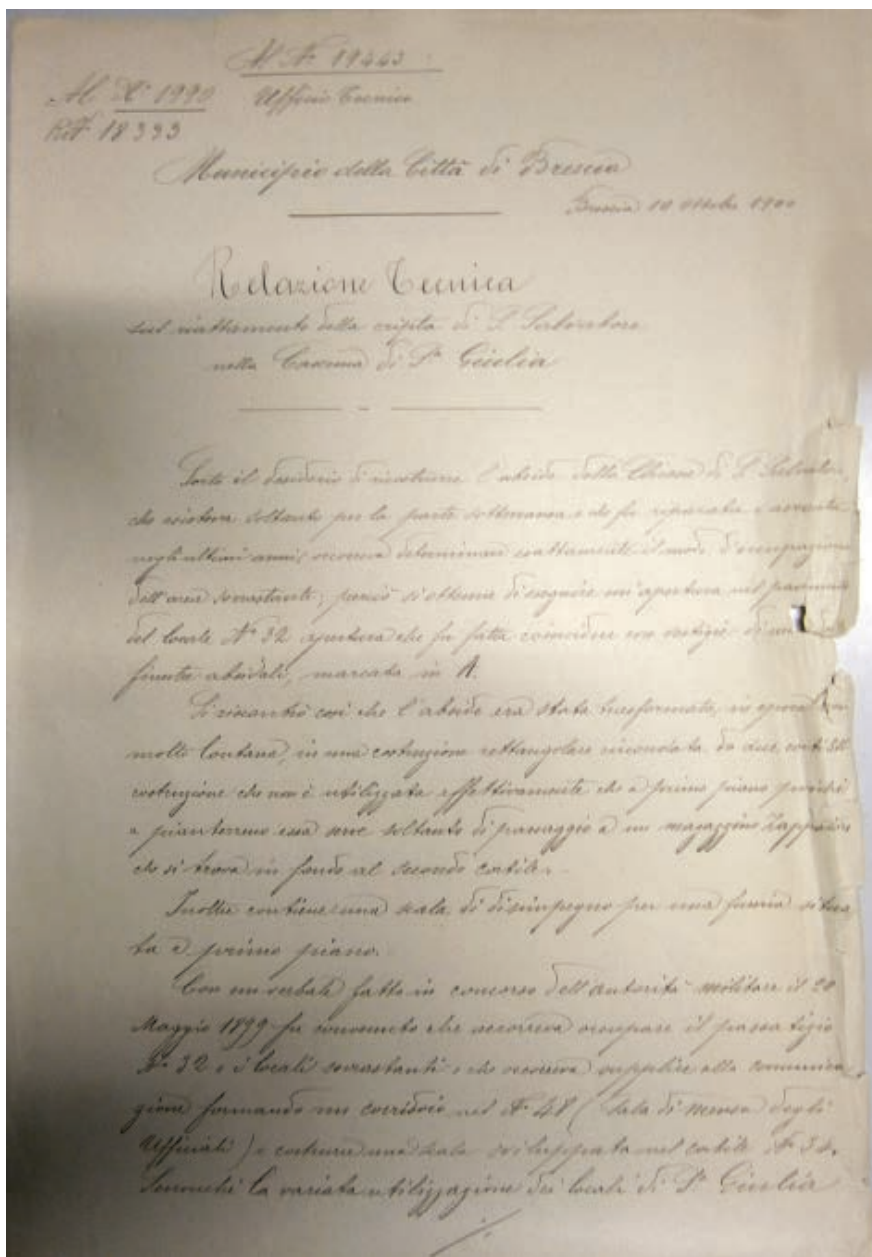 N. 19443
N. 1990
Ufficio Tecnico
Rif. 18333
Municipio della Città di Brescia
Brescia 10 Ottobre 1900
Relazione Tecnica
sul riattamento della cripta di S. Salvatore
nella Caserma di Sa Giulia
Sorto il desiderio di ricostruire l'abside della Chiesa di S. Salvatore,
che esisteva soltanto per la parte sotterranea e che fu riparata e
negli ultimi anni, occorreva determinare esattamente il modo d'occupazione
dell'area sovrastante; perciò si ottenne di eseguire un'apertura nel pavimento
del locale No 32 apertura che fu fatta coincidere con vestigie di una
finestre absidali, marcata in A.
Si riscontrò così che l'abside era stata trasformata, in epoca non
molto lontana, in una costruzione rettangolare da due cortili
costruzione che non è utilizzata effettivamente che a primo piano perché
a pianterreno essa serve soltanto di passaggio a un magazzino Zappatori
che si trova in fondo al secondo cortile.
Inoltre contiene una scala di disimpegno per una fureria situa
ta a primo piano.
Con un verbale fatto in concorso dell'autorità militare il 20
Maggio 1899 fu convenuto che occorreva occupare il passaggio
No 32 e i locali sovrastanti e che occorreva supplire alla comunica
zione formando un corridoio nel No 48 (sala di mensa degli
Ufficiali) e costruire una scala sviluppata nel cortile No 34.
Senonchè la variata utilizzazione dei locali di Sa Giulia